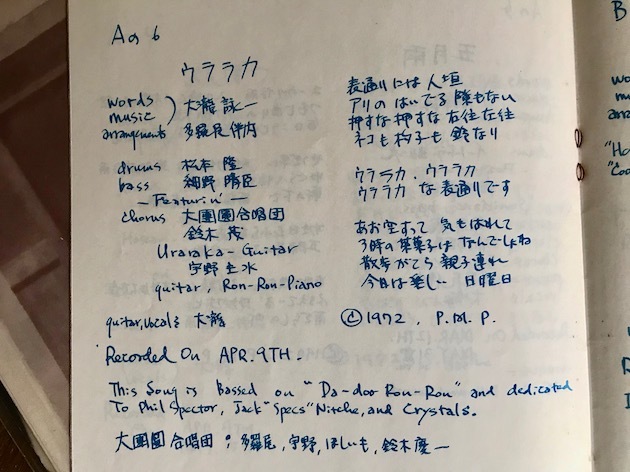 Aの6
ウララカ
words
music
arrangements
大瀧詠一
多羅尾伴内
drums 松本隆
bass 細野晴臣
—Featurin'—
chorus 大團圓合唱団
鈴木茂
Uraraka-Guitar
宇野主水
guitar, Ron-Ron-Piano
guitar, Vocal 大瀧
Recorded On APR. 9TH.
表通りには人垣
アリのはいでる隙もない
押すな押すな左往左往
ネコも杓子も鈴なり
ウララカ・ウララカ
ウララカな表通りです
あお空すって 気もはれて
3時の菓子はなんでしょね
散歩がてら親子連れ
今日は楽しい 日曜日
© 1972, P.M.P.
This Song is bassed on "Da-doo Ron-Ron" and dedicated
To Phil Spector, Jack "Specs" Nitche, and Crystals.
大團圓合唱団; 多羅尾,宇野, ほしいも, 鈴木慶一
五月雨
B